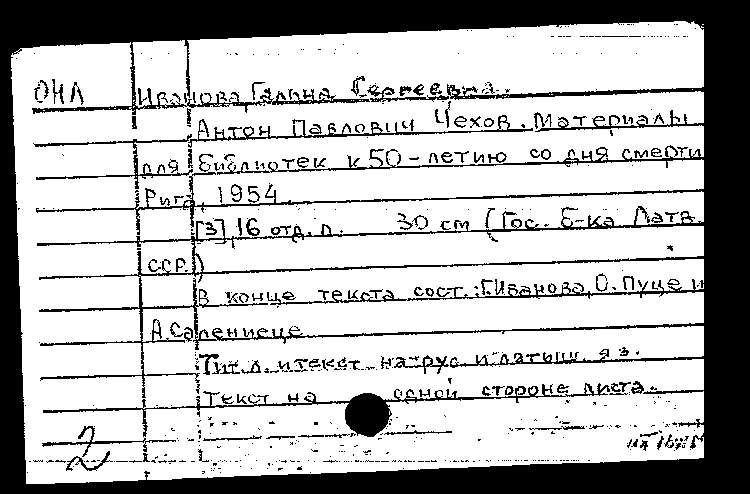 ОНЛ Иванова, Галина Сергеевна.
Антон Павлович Чехов. Материалы
для библиотек к 50-летию со дня смерти
Рига, 1954.
[3], 16 отд. л. 30 см (Гос. б-ка Латв.
ССР)
В конце текста сост.: Г.Иванова, О. Пуце и
А.Салениеце
Тит. л. и текст на рус. и латыш. яз.
Текст на одной стороне листа.
2